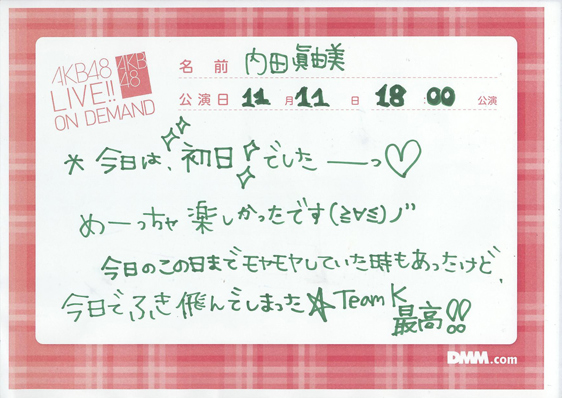 AKB48
LIVE!!
ON DEMAND
AKB
48
名前 内田眞由美
公演日 11月11日 18:00 公演
* 今日は、初日でしたーっ♡
めーっちゃ楽しかったです(≧∀≦)ノ"
今日のこの日までモヤモヤしていた時もあったけど、
今日でふき飛んでしまった☆TeamK
最高!!
DMM.com